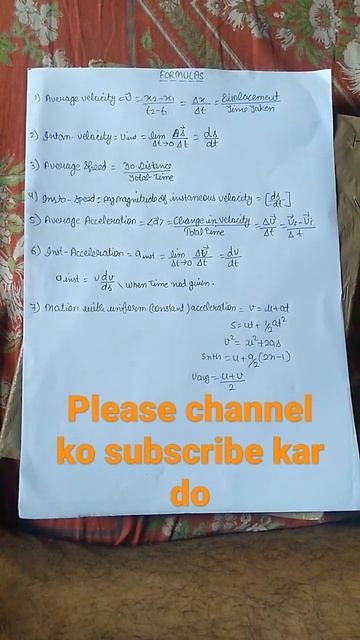 FORMULAS
1) Average velocity = v⃗ = x2-x1/t2-t1 = Δx/Δt = Displacement/Time Taken
2) Intan-velocity = vinst = lim Δt→0 Δs⃗/Δt = ds/dt
3) Average Speed = To Distance/Total Time
4) Insta-Speed = magnitude of instaneous velocity = [ds/dt]
5) Average Acceleration = <a⃗> = Change in velocity/Total Time = Δv⃗/Δt = v⃗f-v⃗i/Δt
6) Inst-Acceleration = a inst = lim Δt→0 Δv⃗/Δt = dv/dt
a inst = vdv/ds, when Time not given.
7) Motion with uniform (constant) acceleration = v = u+at
S = ut + 1/2at²
v² = u²+2as
Snth = u+a/2(2n-1)
vavg = u+v/2
Please channel
ko subscribe kar
do